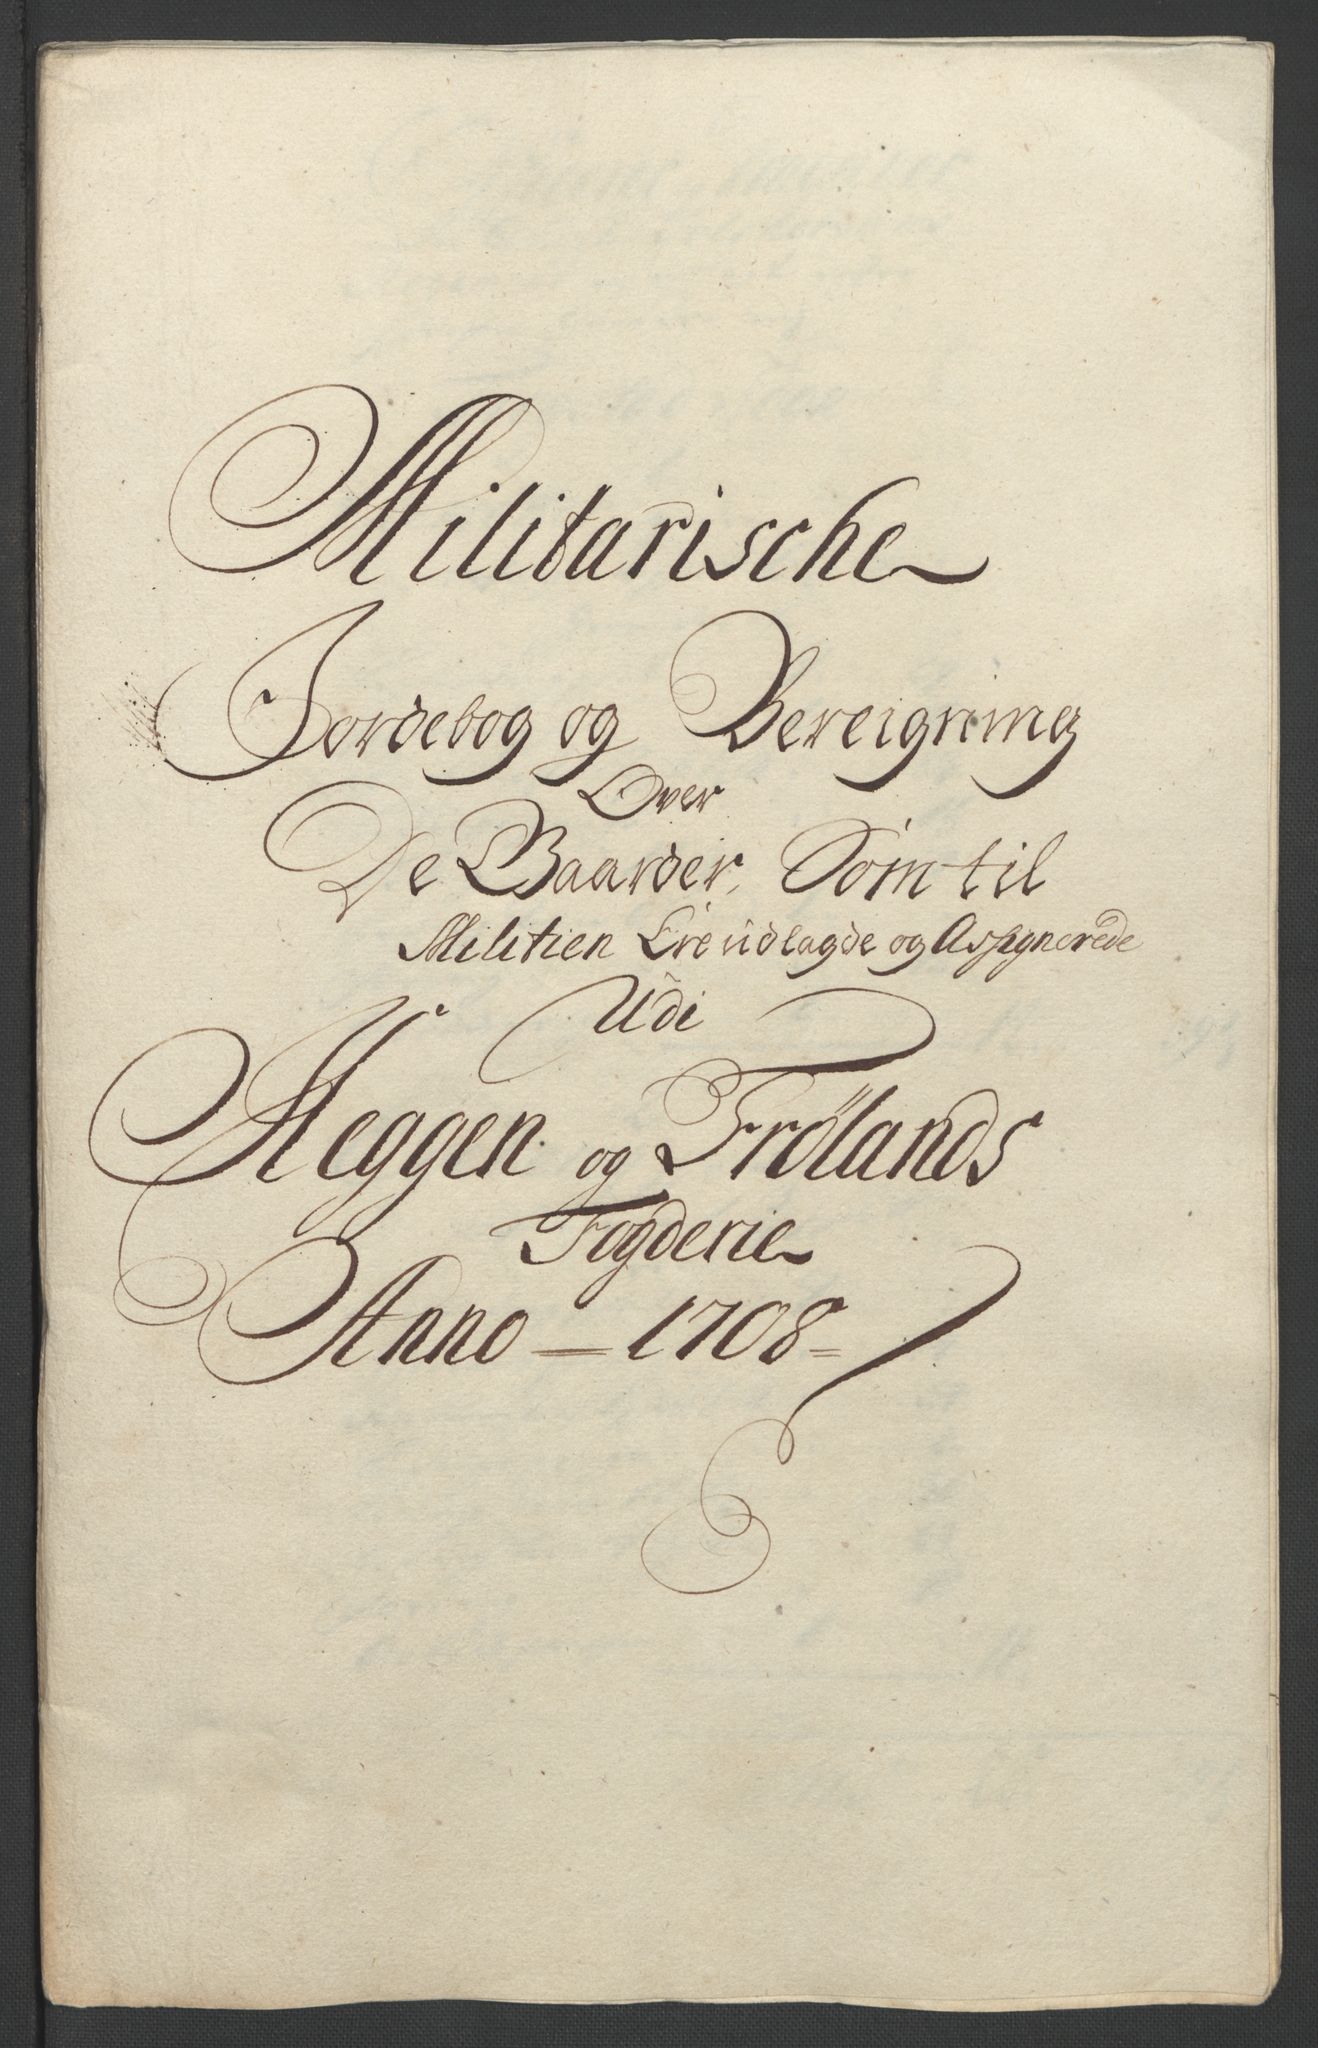 Militarische
Jordebog og Bereigning
Over
De Gaarder, Som til
Militien Ere udlagde og Assignerede
Udi
Heggen og Frölands
Fogderie
Anno - 1708 =